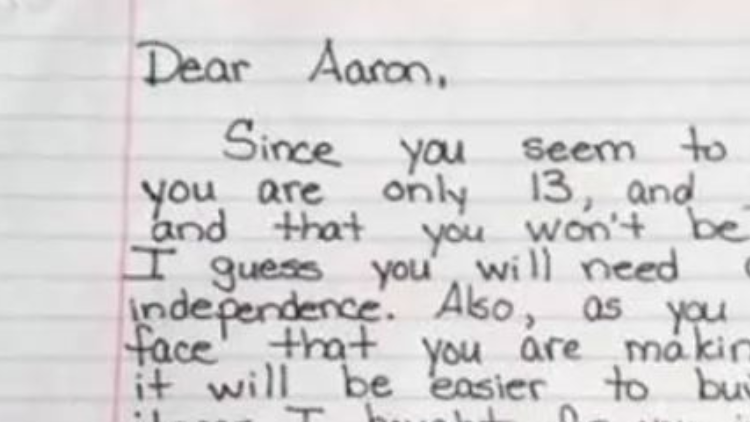 Dear Aaron,
Since you seem to
you are only 13, and
and that you won't be
I guess you will need
independence. Also, as you
face that you are makin
it will be easier to bu
I bought